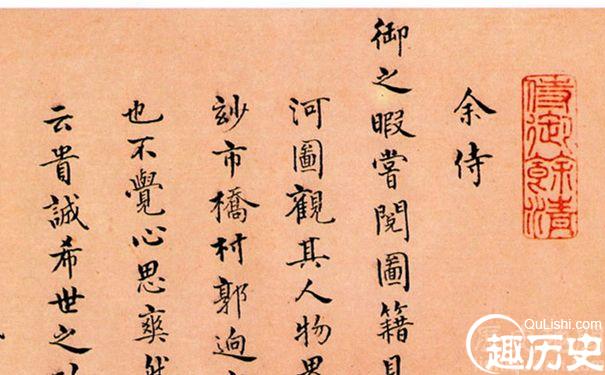 余侍
御之暇嘗閱圖籍見
河圖觀其人物界
玅市橋村郭迥
也不覺心思爽然
云貴誠希世之
侍御餘清
QuLishi.com
趣历史